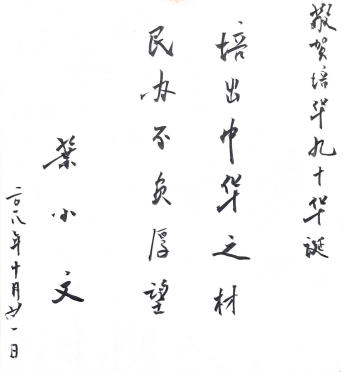 敬贺培华九十华诞
培出中华之材
民办不负厚望
叶小文
二〇一八年十月廿一日